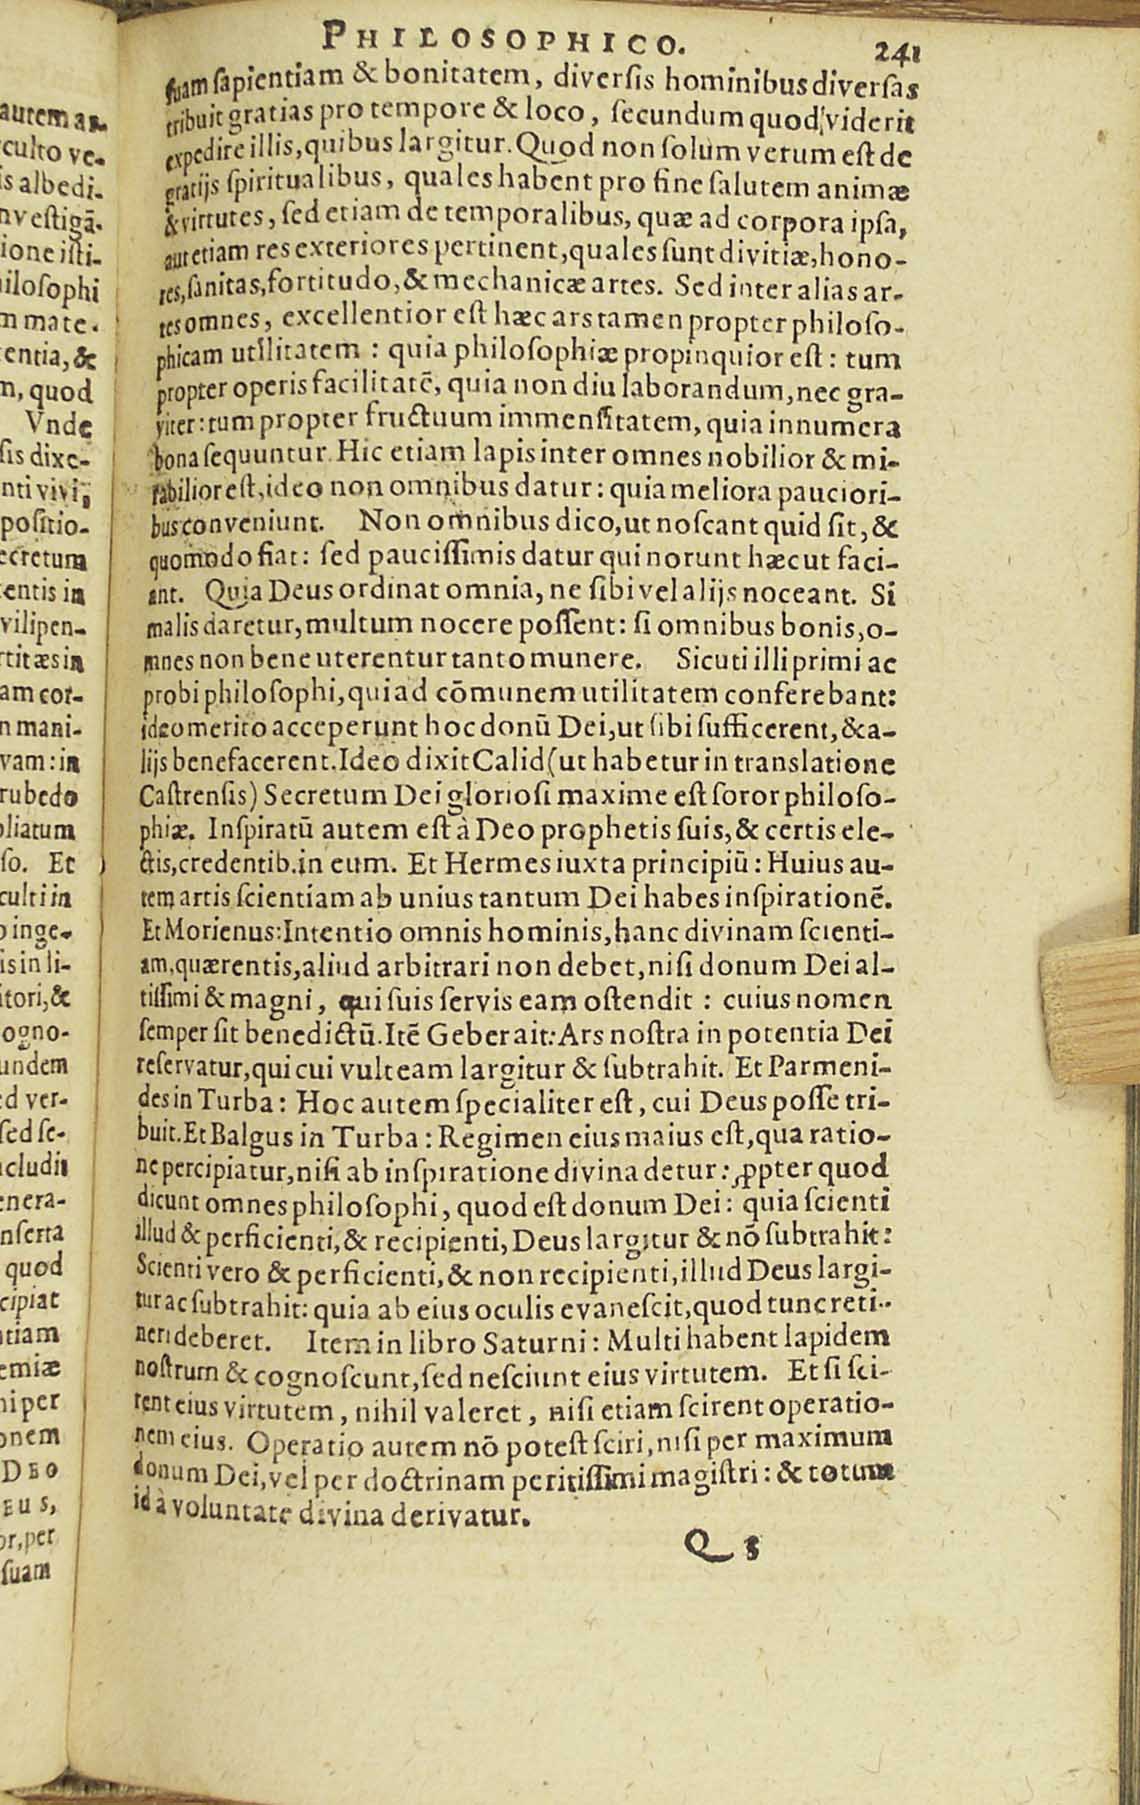 PHILOSOPHICO. 241
ſuam ſapientiam & bonitatem, diverſis hominibus diverſas
tribuit gratias pro tempore & loco, ſecundum quod viderit
expedire illis, quibus largitur. Quod non ſolum verum eſt de
gratijs ſpiritualibus, quales habent pro fine ſalutem animæ
& virtutes, ſed etiam de temporalibus, quæ ad corpora ipſa,
aut etiam res exteriores pertinent, quales ſunt divitiæ, hono-
res, ſanitas, fortitudo, & mechanicæ artes. Sed inter alias ar-
tes omnes, excellentior eſt hæc ars tamen propter philoſo-
phicam utilitatem: quia philoſophiæ propinquior eſt: tum
propter operis facilitatē, quia non diu laborandum, nec gra-
viter: tum propter fructuum immenſitatem, quia innumera
bona ſequuntur. Hic etiam lapis inter omnes nobilior & mi-
rabilior eſt, ideo non omnibus datur: quia meliora paucior​i-
bus conveniunt. Non omnibus dico, ut noſcant quid ſit, &
quomodo fiat: ſed pauciſſimis datur qui norunt hæc ut faci-
ant. Quia Deus ordinat omnia, ne ſibi vel alijs noceant. Si
malis daretur, multum nocere poſſent: ſi omnibus bonis, o-
mnes non bene uterentur tanto munere. Sicuti illi primi ac
probi philoſophi, qui ad cōmunem utilitatem conferebant:
ideo merito acceperunt hoc donū Dei, ut ſibi ſufficerent, & a-
lijs benefacerent. Ideo dixit Calid (ut habetur in translatione
Caſtrenſis) Secretum Dei glorioſi maxime eſt ſoror philoſo-
phiæ. Inſpiratū autem eſt à Deo prophetis ſuis, & certis ele-
ctis, credentib. in eum. Et Hermes iuxta principiū: Huius au-
tem artis ſcientiam ab unius tantum Dei habes inſpirationē.
Et Morienus: Intentio omnis hominis, hanc divinam ſcienti-
am, quærentis, aliud arbitrari non debet, niſi donum Dei al-
tiſſimi & magni, qui ſuis ſervis eam oſtendit: cuius nomen
ſemper ſit benedictū. Itē Geber ait: Ars noſtra in potentia Dei
reſervatur, qui cui vult eam largitur & ſubtrahit. Et Parmeni-
des in Turba: Hoc autem ſpecialiter eſt, cui Deus poſſe tri-
buit. Et Balgus in Turba: Regimen eius maius eſt, qua ratio-
ne percipiatur, niſi ab inſpiratione divina detur: ꝓpter quod
dicunt omnes philoſophi, quod eſt donum Dei: quia ſcienti
illud & perficienti, & recipienti, Deus largitur & nō ſubtrahit:
Scienti vero & perficienti, & non recipienti, illud Deus largi-
tur ac ſubtrahit: quia ab eius oculis evaneſcit, quod tunc reti-
neri deberet. Item in libro Saturni: Multi habent lapidem
noſtrum & cognoſcunt, ſed neſciunt eius virtutem. Et ſi ſci-
rent eius virtutem, nihil valeret, niſi etiam ſcirent operatio-
nem eius. Operatio autem nō poteſt ſciri, niſi per maximum
donum Dei, vel per doctrinam peritiſſimi magiſtri: & totum
id à voluntate divina derivatur.
Q 5